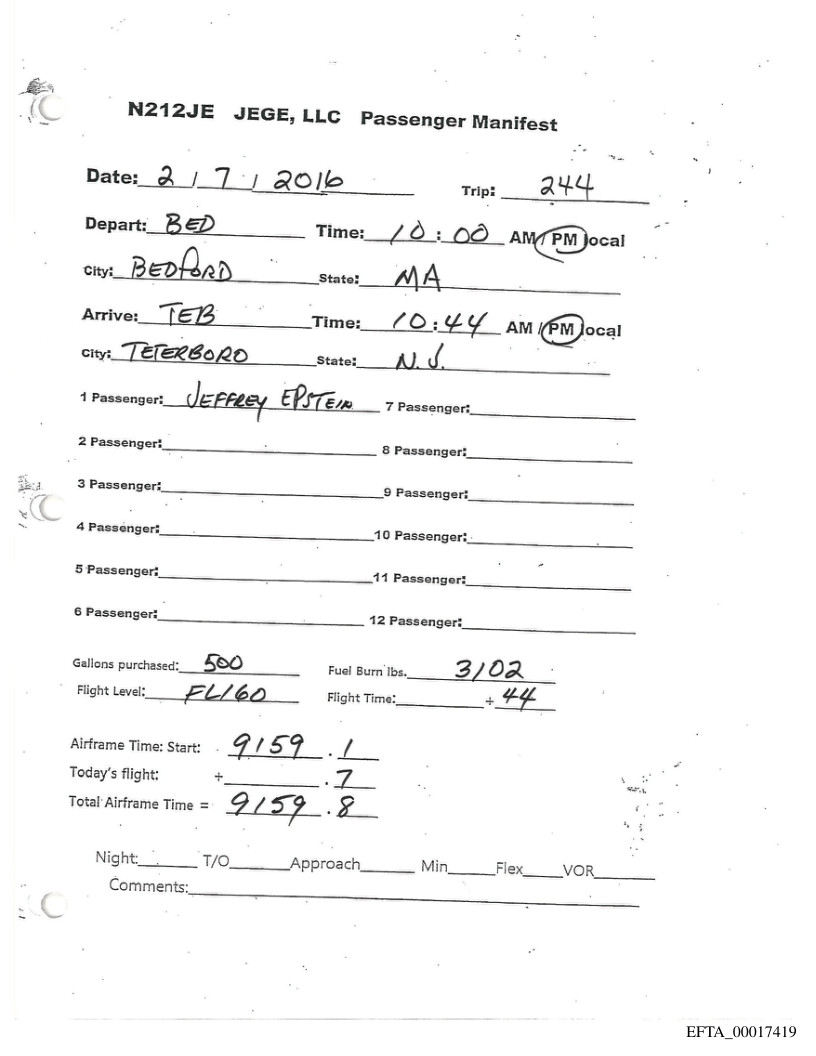 N212JE JEGE, LLC Passenger Manifest
Date: 2 / 7 / 2016 Trip: 244
Depart: BED Time: 10:00 AM / PM local
City: BEDFORD State: MA
Arrive: TEB Time: 10:44 AM / PM local
City: TETERBORO State: N.J.
1 Passenger: JEFFREY EPSTEIN 7 Passenger:
2 Passenger: 8 Passenger:
3 Passenger: 9 Passenger:
4 Passenger: 10 Passenger:
5 Passenger: 11 Passenger:
6 Passenger: 12 Passenger:
Gallons purchased: 500 Fuel Burn lbs. 3102
Flight Level: FL160 Flight Time: + 44
Airframe Time: Start: 9159 . 1
Today's flight: + . 7
Total Airframe Time = 9159 . 8
Night: T/O Approach Min Flex VOR
Comments:
EFTA_00017419